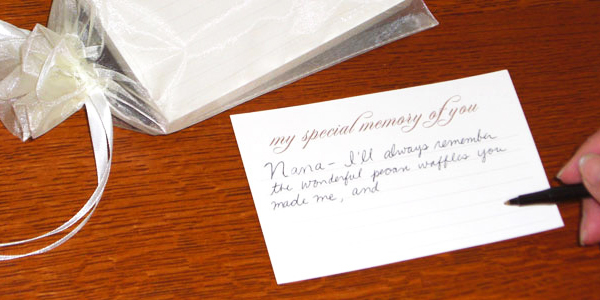 my special memory of you
Nana- I'll always remember
the wonderful pecan waffles you
made me, and